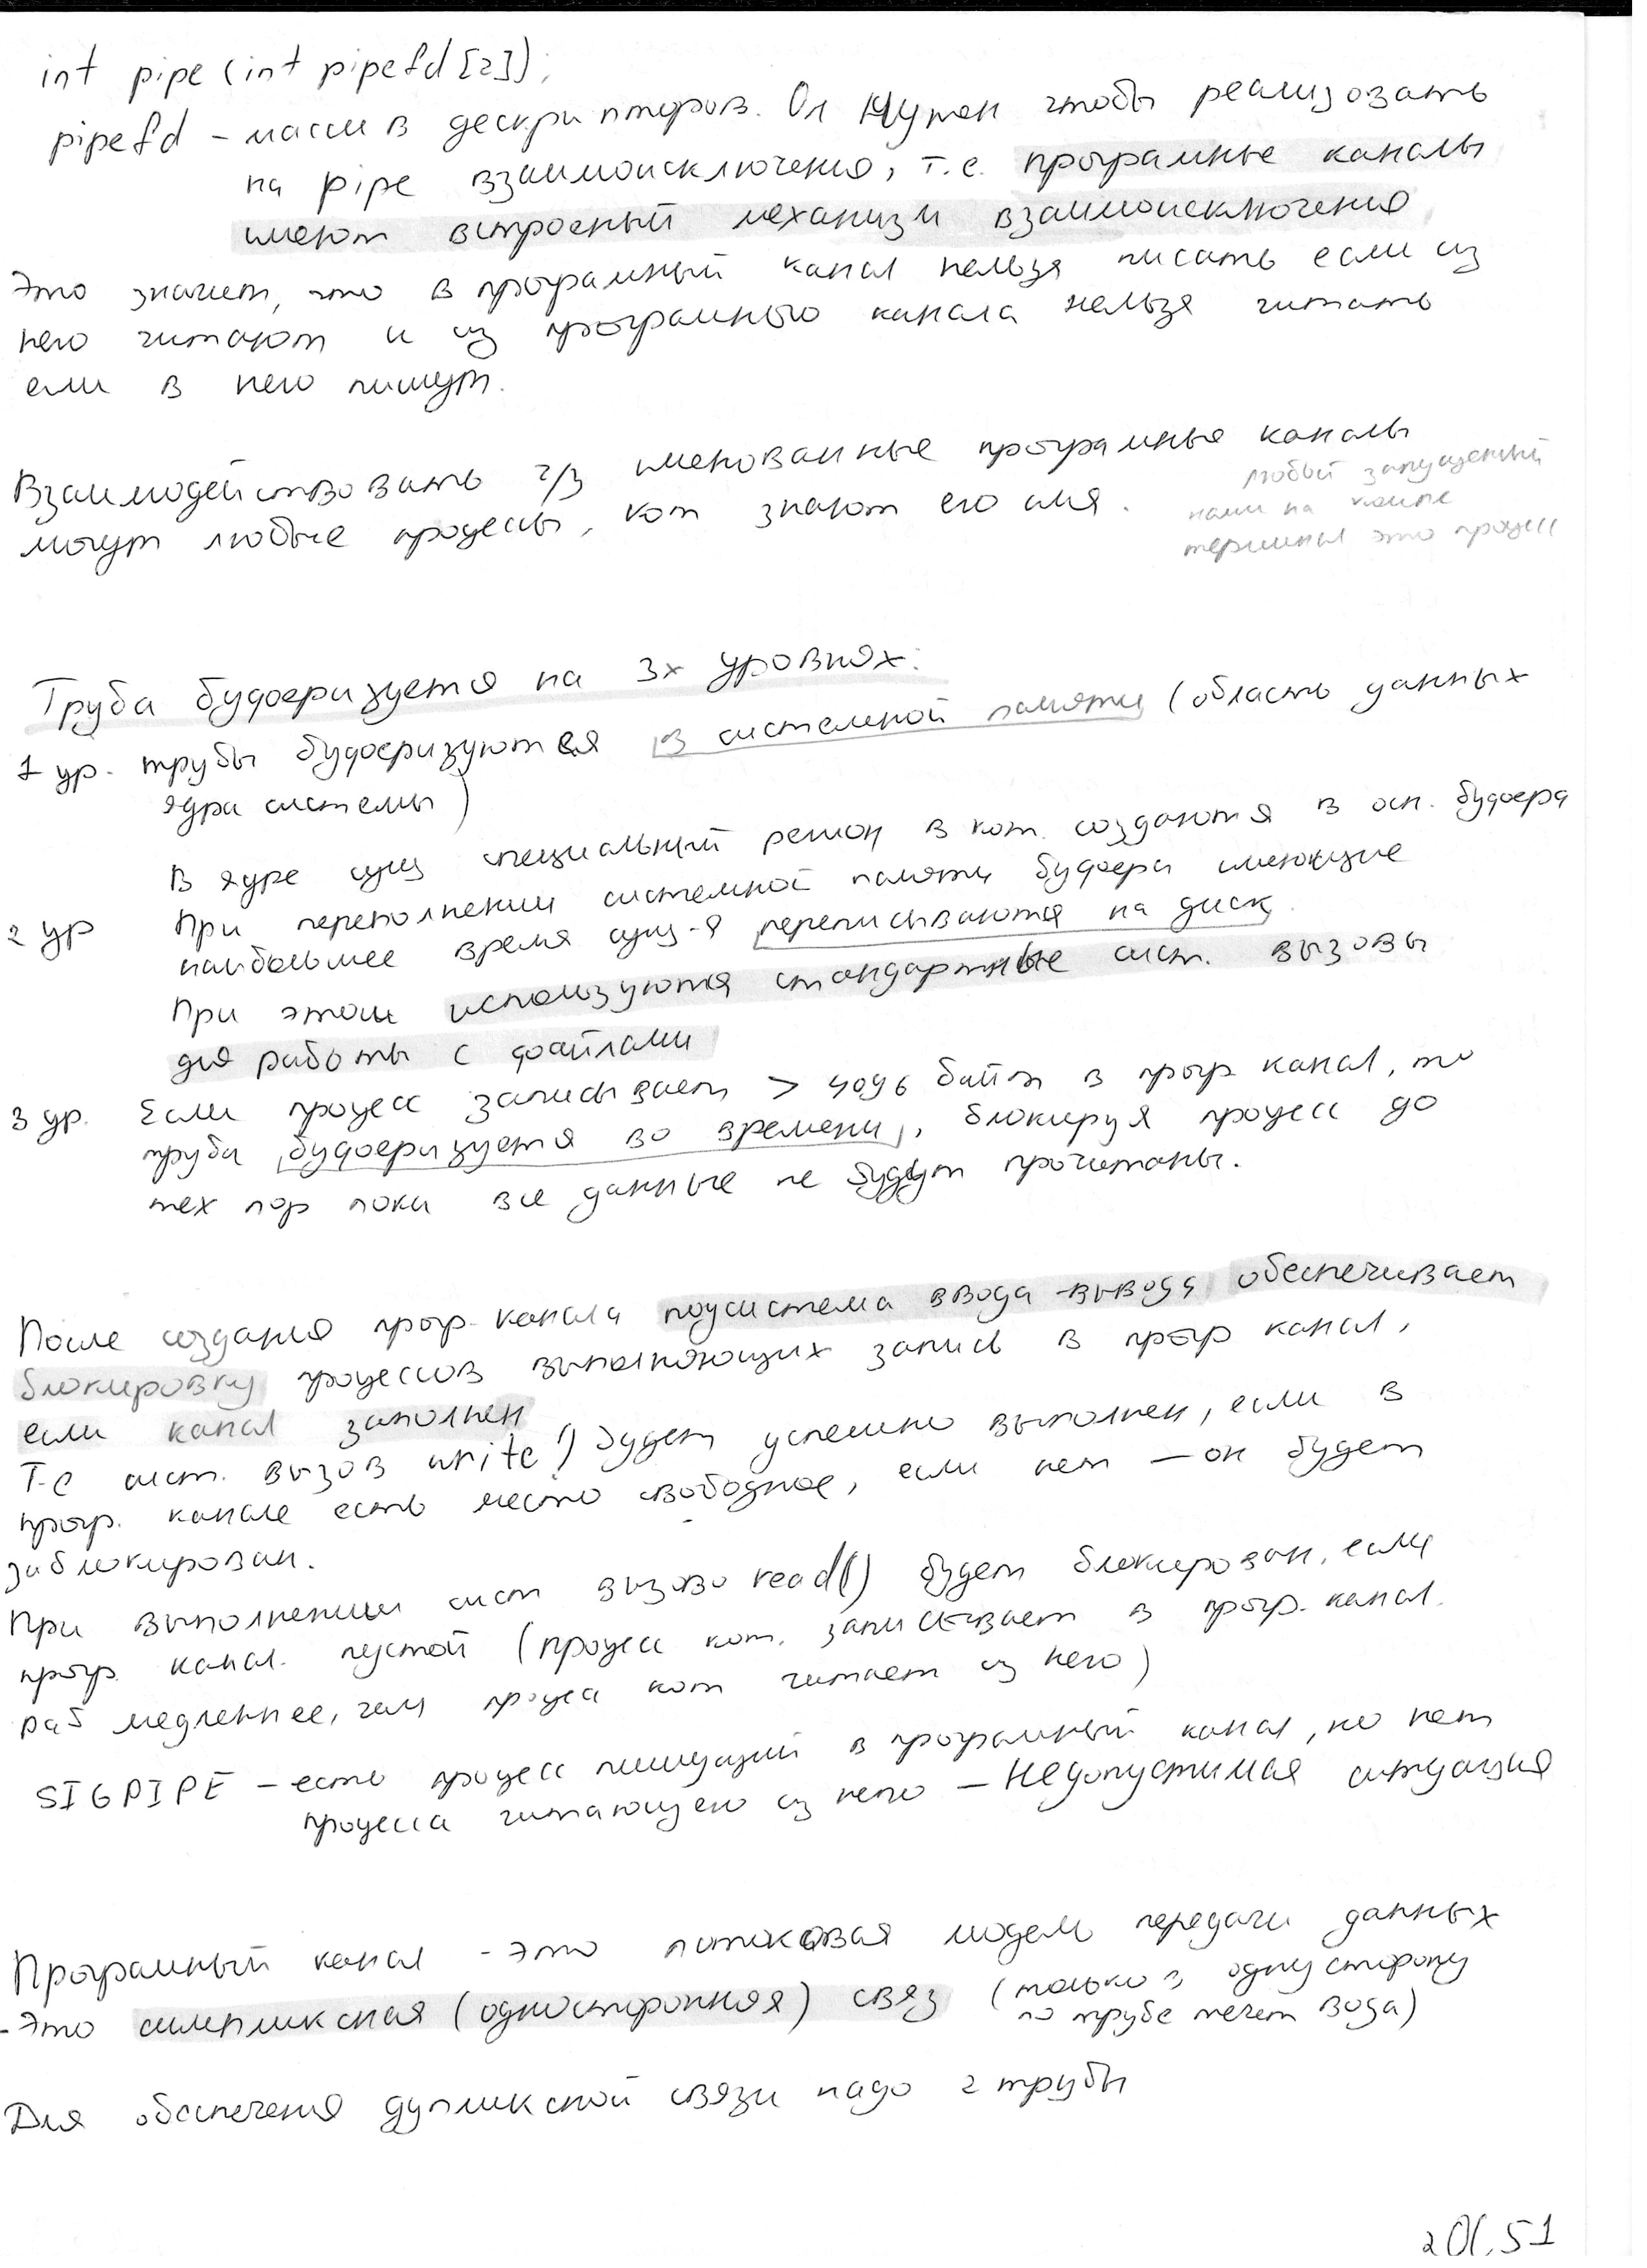 int pipe (int pipefd [2]);
pipefd - массив дескрипторов. Он нужен чтобы реализовать
на pipe взаимоисключение, т.е. програмные каналы
имеют встроеный механизм взаимоисключения
Это значит, что в програмный канал нельзя писать если из
него читают и из програмного канала нельзя читать
если в него пишут.
Взаимодействовать ч/з именованные програмные каналы
могут любые процессы, кот знают его имя.
любой запущенный
нами на компе
терминал это процесс
Труба буферизуется на 3х уровнях:
1 ур. трубы буферизуются в системной памяти (область данных
ядра системы)
В ядре сущ специальный регион в кот. создаются в осн. буфера
2 ур При переполнении системной памяти буфера имеющие
наибольшее время сущ-я переписываются на диск.
При этом используются стандартные сист. вызовы
для работы с файлами
3 ур. Если процесс записывает > 4096 байт в прогр канал, то
труба буферизуется во времени, блокируя процесс до
тех пор пока все данные не будут прочитаны.
После создания прогр. канала подсистема ввода-вывода обеспечивает
блокировку процессов выполняющих запись в прогр канал,
если канал заполнен
Т.е сист. вызов write() будет успешно выполнен, если в
прогр. канале есть место свободное, если нет - он будет
заблокирован.
При выполнении сист вызова read() будет блокирован, если
прогр. канал. пустой (процесс кот. записывает в прогр. канал.
раб медленнее, чем процесс кот читает из него)
SIGPIPE - есть процесс пишущий в програмный канал, но нет
процесса читающего из него - Недопустимая ситуация
Програмный канал - это потоковая модель передачи данных
- Это симплексная (односторонняя) связ (только в одну сторону
по трубе течет вода)
Для обеспечения дуплексной связи надо 2 трубы